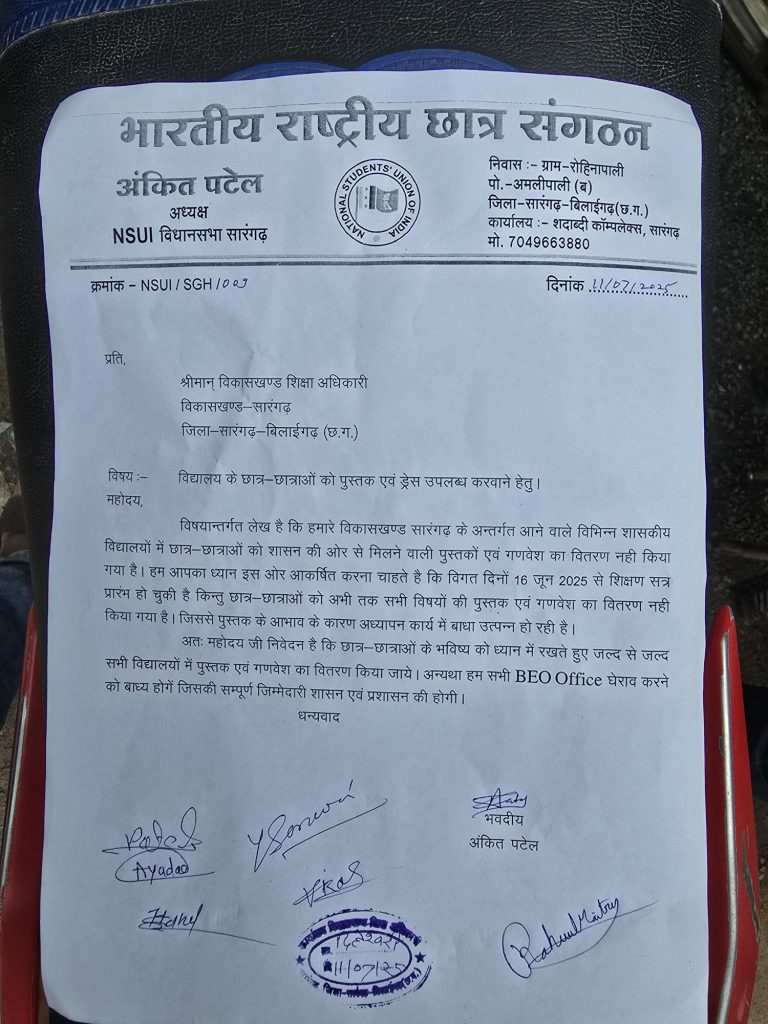 भारतीय राष्ट्रीय छात्र संगठन
अंकित पटेल
अध्यक्ष
NSUI विधानसभा सारंगढ़
NATIONAL STUDENTS' UNION OF INDIA
निवास :- ग्राम-रोहिनापाली
पो.-अमलीपाली (ब)
जिला-सारंगढ़-बिलाईगढ़(छ.ग.)
कार्यालय :- शदाब्दी कॉम्पलेक्स, सारंगढ़
मो. 7049663880
क्रमांक - NSUI / SGH / 009
दिनांक 11/07/2025
प्रति,
श्रीमान् विकासखण्ड शिक्षा अधिकारी
विकासखण्ड–सारंगढ़
जिला–सारंगढ़–बिलाईगढ़ (छ.ग.)
विषय :– विद्यालय के छात्र–छात्राओं को पुस्तक एवं ड्रेस उपलब्ध करवाने हेतु।
महोदय,
विषयान्तर्गत लेख है कि हमारे विकासखण्ड सारंगढ़ के अन्तर्गत आने वाले विभिन्न शासकीय
विद्यालयों में छात्र–छात्राओं को शासन की ओर से मिलने वाली पुस्तकों एवं गणवेश का वितरण नही किया
गया है। हम आपका ध्यान इस ओर आकर्षित करना चाहते है कि विगत दिनों 16 जून 2025 से शिक्षण सत्र
प्रारंभ हो चुकी है किन्तु छात्र–छात्राओं को अभी तक सभी विषयों की पुस्तक एवं गणवेश का वितरण नही
किया गया है। जिससे पुस्तक के आभाव के कारण अध्यापन कार्य में बाधा उत्पन्न हो रही है।
अतः महोदय जी निवेदन है कि छात्र–छात्राओं के भविष्य को ध्यान में रखते हुए जल्द से जल्द
सभी विद्यालयों में पुस्तक एवं गणवेश का वितरण किया जाये। अन्यथा हम सभी BEO Office घेराव करने
को बाध्य होगें जिसकी सम्पूर्ण जिम्मेदारी शासन एवं प्रशासन की होगी।
धन्यवाद
भवदीय
अंकित पटेल
Ayadao
Vikas
11/07/25